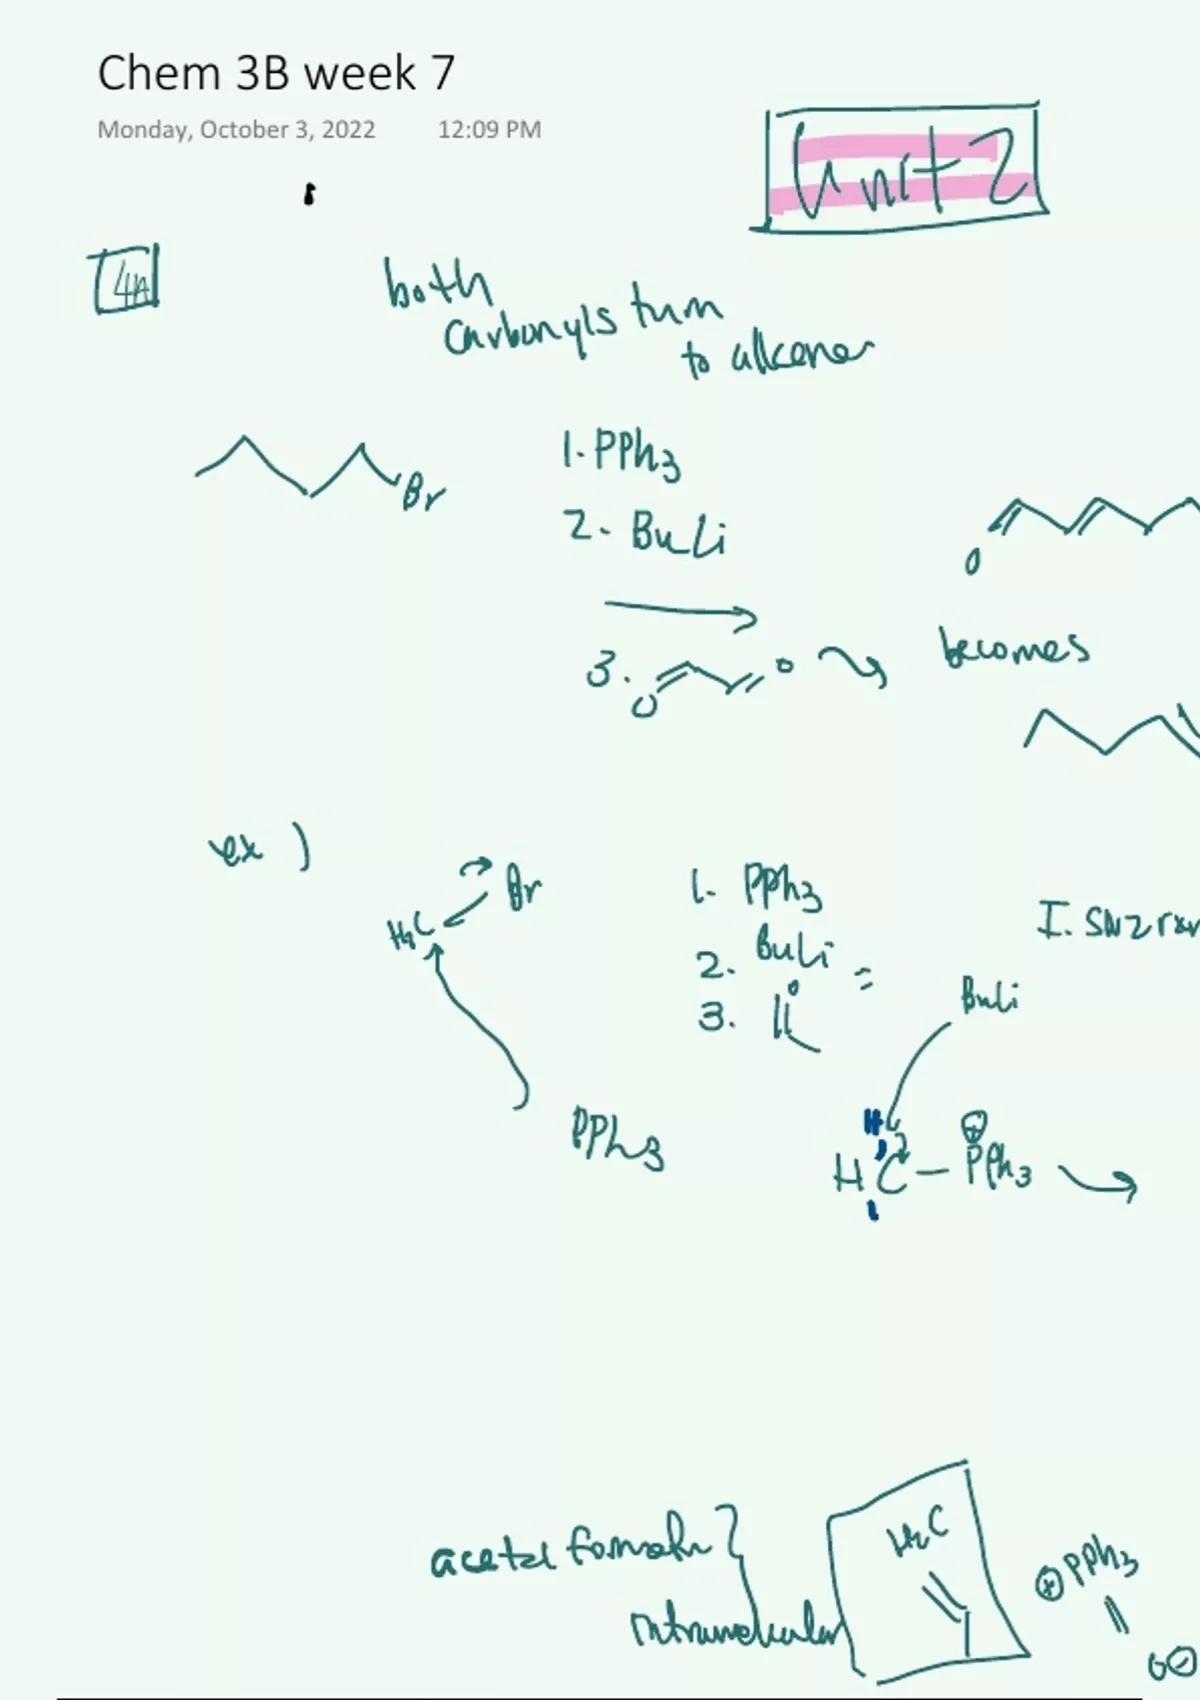 Chem 3B week 7
Monday, October 3, 2022 12:09 PM
Unit 2
4A
both
carbonyls turn
to alkenes
Br
1. PPh3
2. BuLi
O
3. O O
becomes
ex )
H3C Br
1. PPh3
2. BuLi
3. O
=
I. SN2 rxn
BuLi
PPh3
H
H C - PPh3
⊕
acetal formation
intramolecular
H2C
⊕ PPh3
O⊖